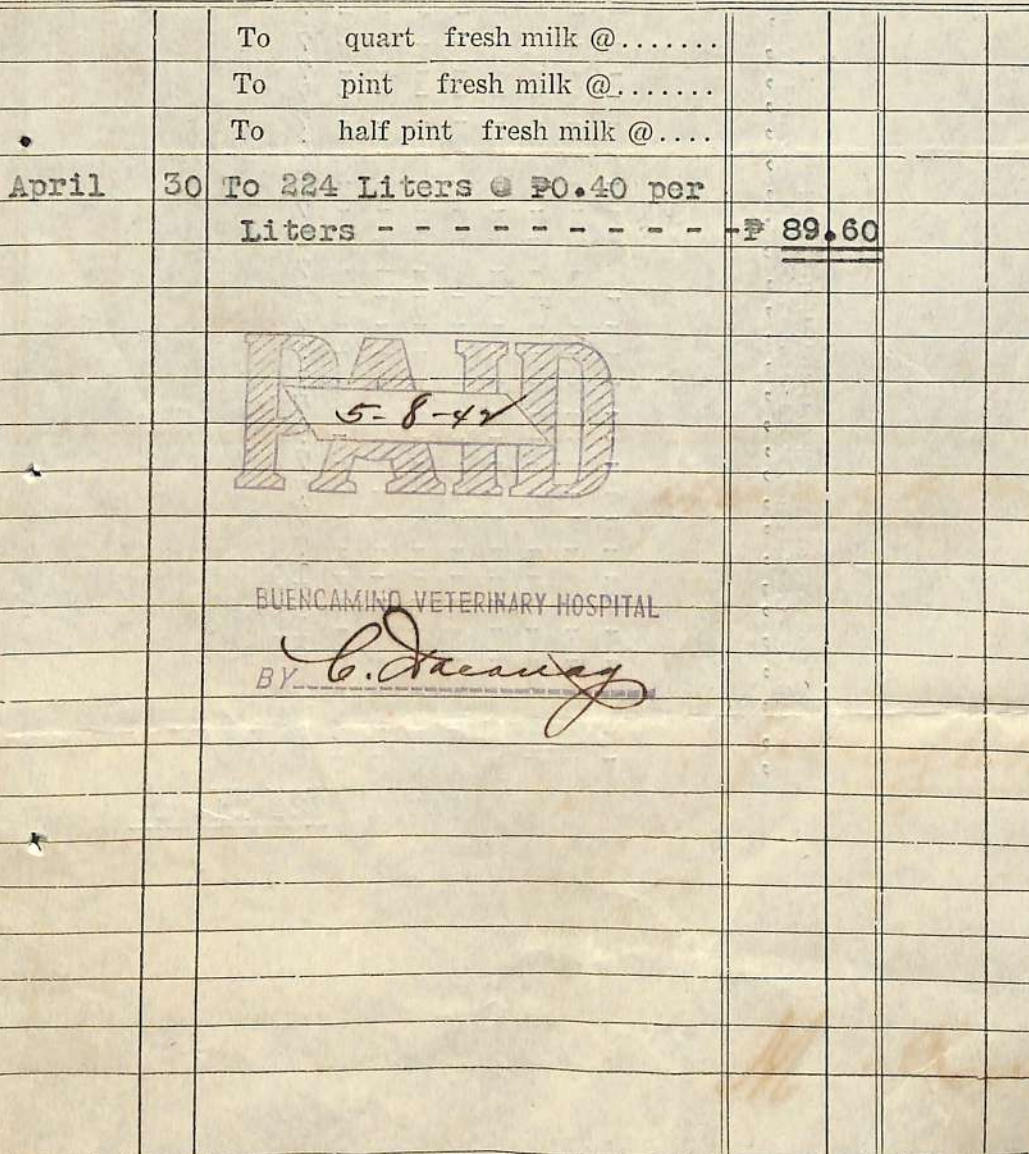 To quart fresh milk @.......
To pint fresh milk @.......
To half pint fresh milk @....
April 30 To 224 Liters @ ₱0.40 per
Liters - - - - - - - - - - -₱ 89.60
PAID
5-8-42
BUENCAMINO VETERINARY HOSPITAL
BY C.